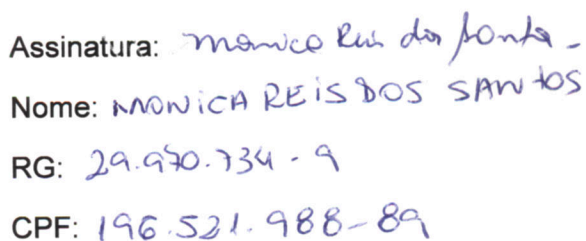 Assinatura: Monica Reis dos Santos
Nome: MONICA REIS DOS SANTOS
RG: 29.970.734-9
CPF: 196.521.988-89